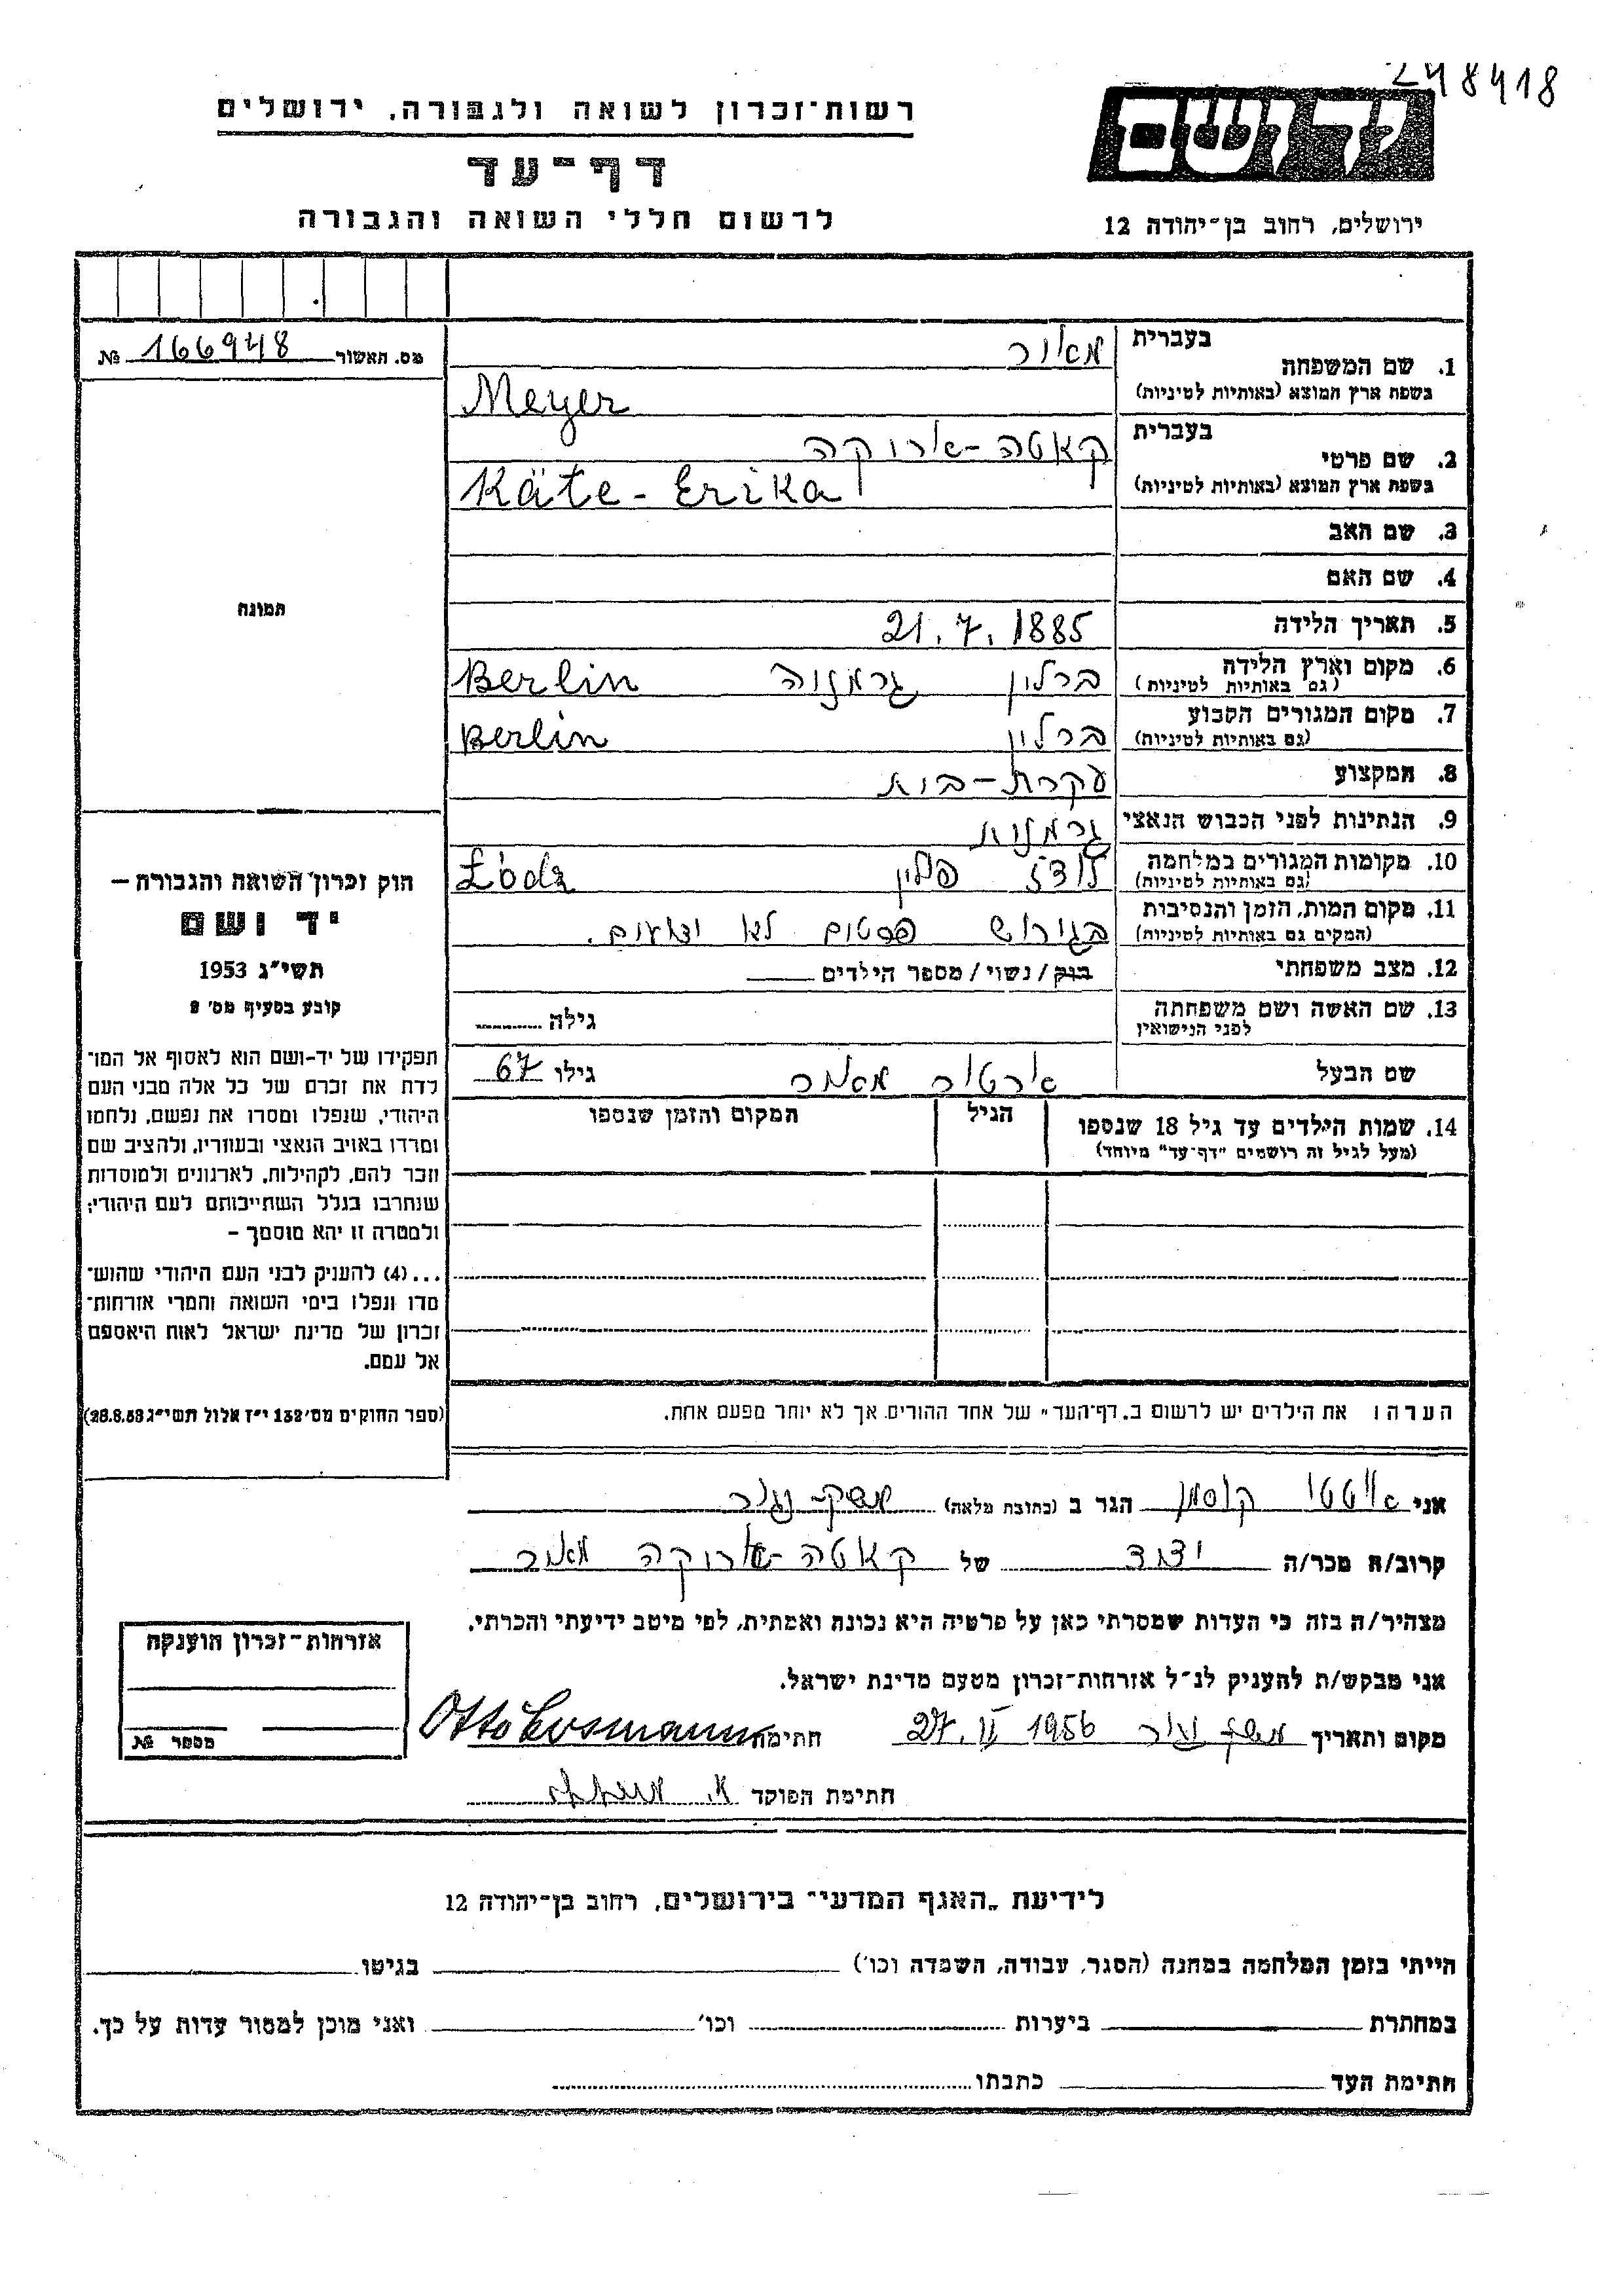 248418
רשות־זכרון לשואה ולגבורה, ירושלים
דף־עד
לרשום חללי השואה והגבורה
יד ושם
ירושלים, רחוב בן־יהודה 12
מס. תאשור 166948 №
בעברית מאיר
1. שם המשפחה
בשפת ארץ המוצא (באותיות לטיניות) Meyer
בעברית קאטה-אריקה
2. שם פרטי
בשפת ארץ המוצא (באותיות לטיניות) Käte - Erika
3. שם האב
4. שם האם
תמונה
5. תאריך הלידה 21.7.1885
6. מקום וארץ הלידה ברלין גרמניה Berlin
(גם באותיות לטיניות)
7. מקום המגורים הקבוע ברלין Berlin
(גם באותיות לטיניות)
8. המקצוע עקרת-בית
9. הנתינות לפני הכבוש הנאצי גרמנית
10. מקומות המגורים במלחמה לודז פולין Łódz
(גם באותיות לטיניות)
11. מקום המות, הזמן והנסיבות בגירוש פרטים לא ידועים.
(המקום גם באותיות לטיניות)
12. מצב משפחתי רווק/נשוי/מספר הילדים
13. שם האשה ושם משפחתה גילה
לפני הנישואין
שם הבעל ארטור מאיר גילו 67
14. שמות הילדים עד גיל 18 שנספו הגיל המקום והזמן שנספו
(מעל לגיל זה רושמים "דף־עד" מיוחד)
חוק זכרון השואה והגבורה —
יד ושם
תשי"ג 1953
קובע בסעיף מס' 2
תפקידו של יד-ושם הוא לאסוף אל המו־
לדת את זכרם של כל אלה מבני העם
היהודי, שנפלו ומסרו את נפשם, נלחמו
ומרדו באויב הנאצי ובעוזריו, ולהציב שם
וזכר להם, לקהילות, לארגונים ולמוסדות
שנחרבו בגלל השתייכותם לעם היהודי;
ולמטרה זו יהא מוסמך –
...(4) להעניק לבני העם היהודי שהוש־
מדו ונפלו בימי השואה והמרי אזרחות־
זכרון של מדינת ישראל לאות היאספם
אל עמם.
(ספר החוקים מס' 132 י"ז אלול תשי"ג 28.8.53)
הערה: את הילדים יש לרשום ב„דף־העד" של אחד ההורים אך לא יותר מפעם אחת.
אני קוסמן הגר ב (כתובת מלאה)
קרוב/ה מכר/ה ידיד של קאטה-אריקה מאיר
מצהיר/ה בזה כי העדות שמסרתי כאן על פרטיה היא נכונה ואמתית, לפי מיטב ידיעתי והכרתי.
אני מבקש/ת להעניק לנ"ל אזרחות־זכרון מטעם מדינת ישראל.
מקום ותאריך 27.II 1956 חתימה
חתימת הפוקד
אזרחות־זכרון הוענקה
מספר №
לידיעת „האגף המדעי" בירושלים, רחוב בן־יהודה 12
הייתי בזמן המלחמה במחנה (הסגר, עבודה, השמדה וכו') בגיטו
במחתרת ביערות וכו' ואני מוכן למסור עדות על כך.
חתימת העד כתבתו